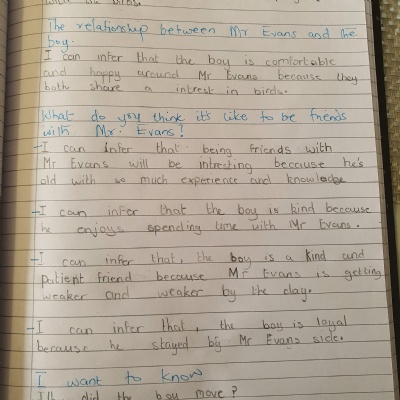 The relationship between Mr Evans and the
boy.
I can infer that the boy is comfortable
and happy around Mr Evans because they
both share a intrest in birds.
What do you think it's like to be friends
with Mr. Evans?
-I can infer that being friends with
Mr Evans will be intresting because he's
old with so much experience and knowledge
-I can infer that the boy is kind because
he enjoys spending time with Mr Evans.
-I can infer that, the boy is a kind and
patient friend because Mr Evans is getting
weaker and weaker by the day.
-I can infer that, the boy is loyal
because he stayed by Mr Evans side.
I want to know
did the boy move?